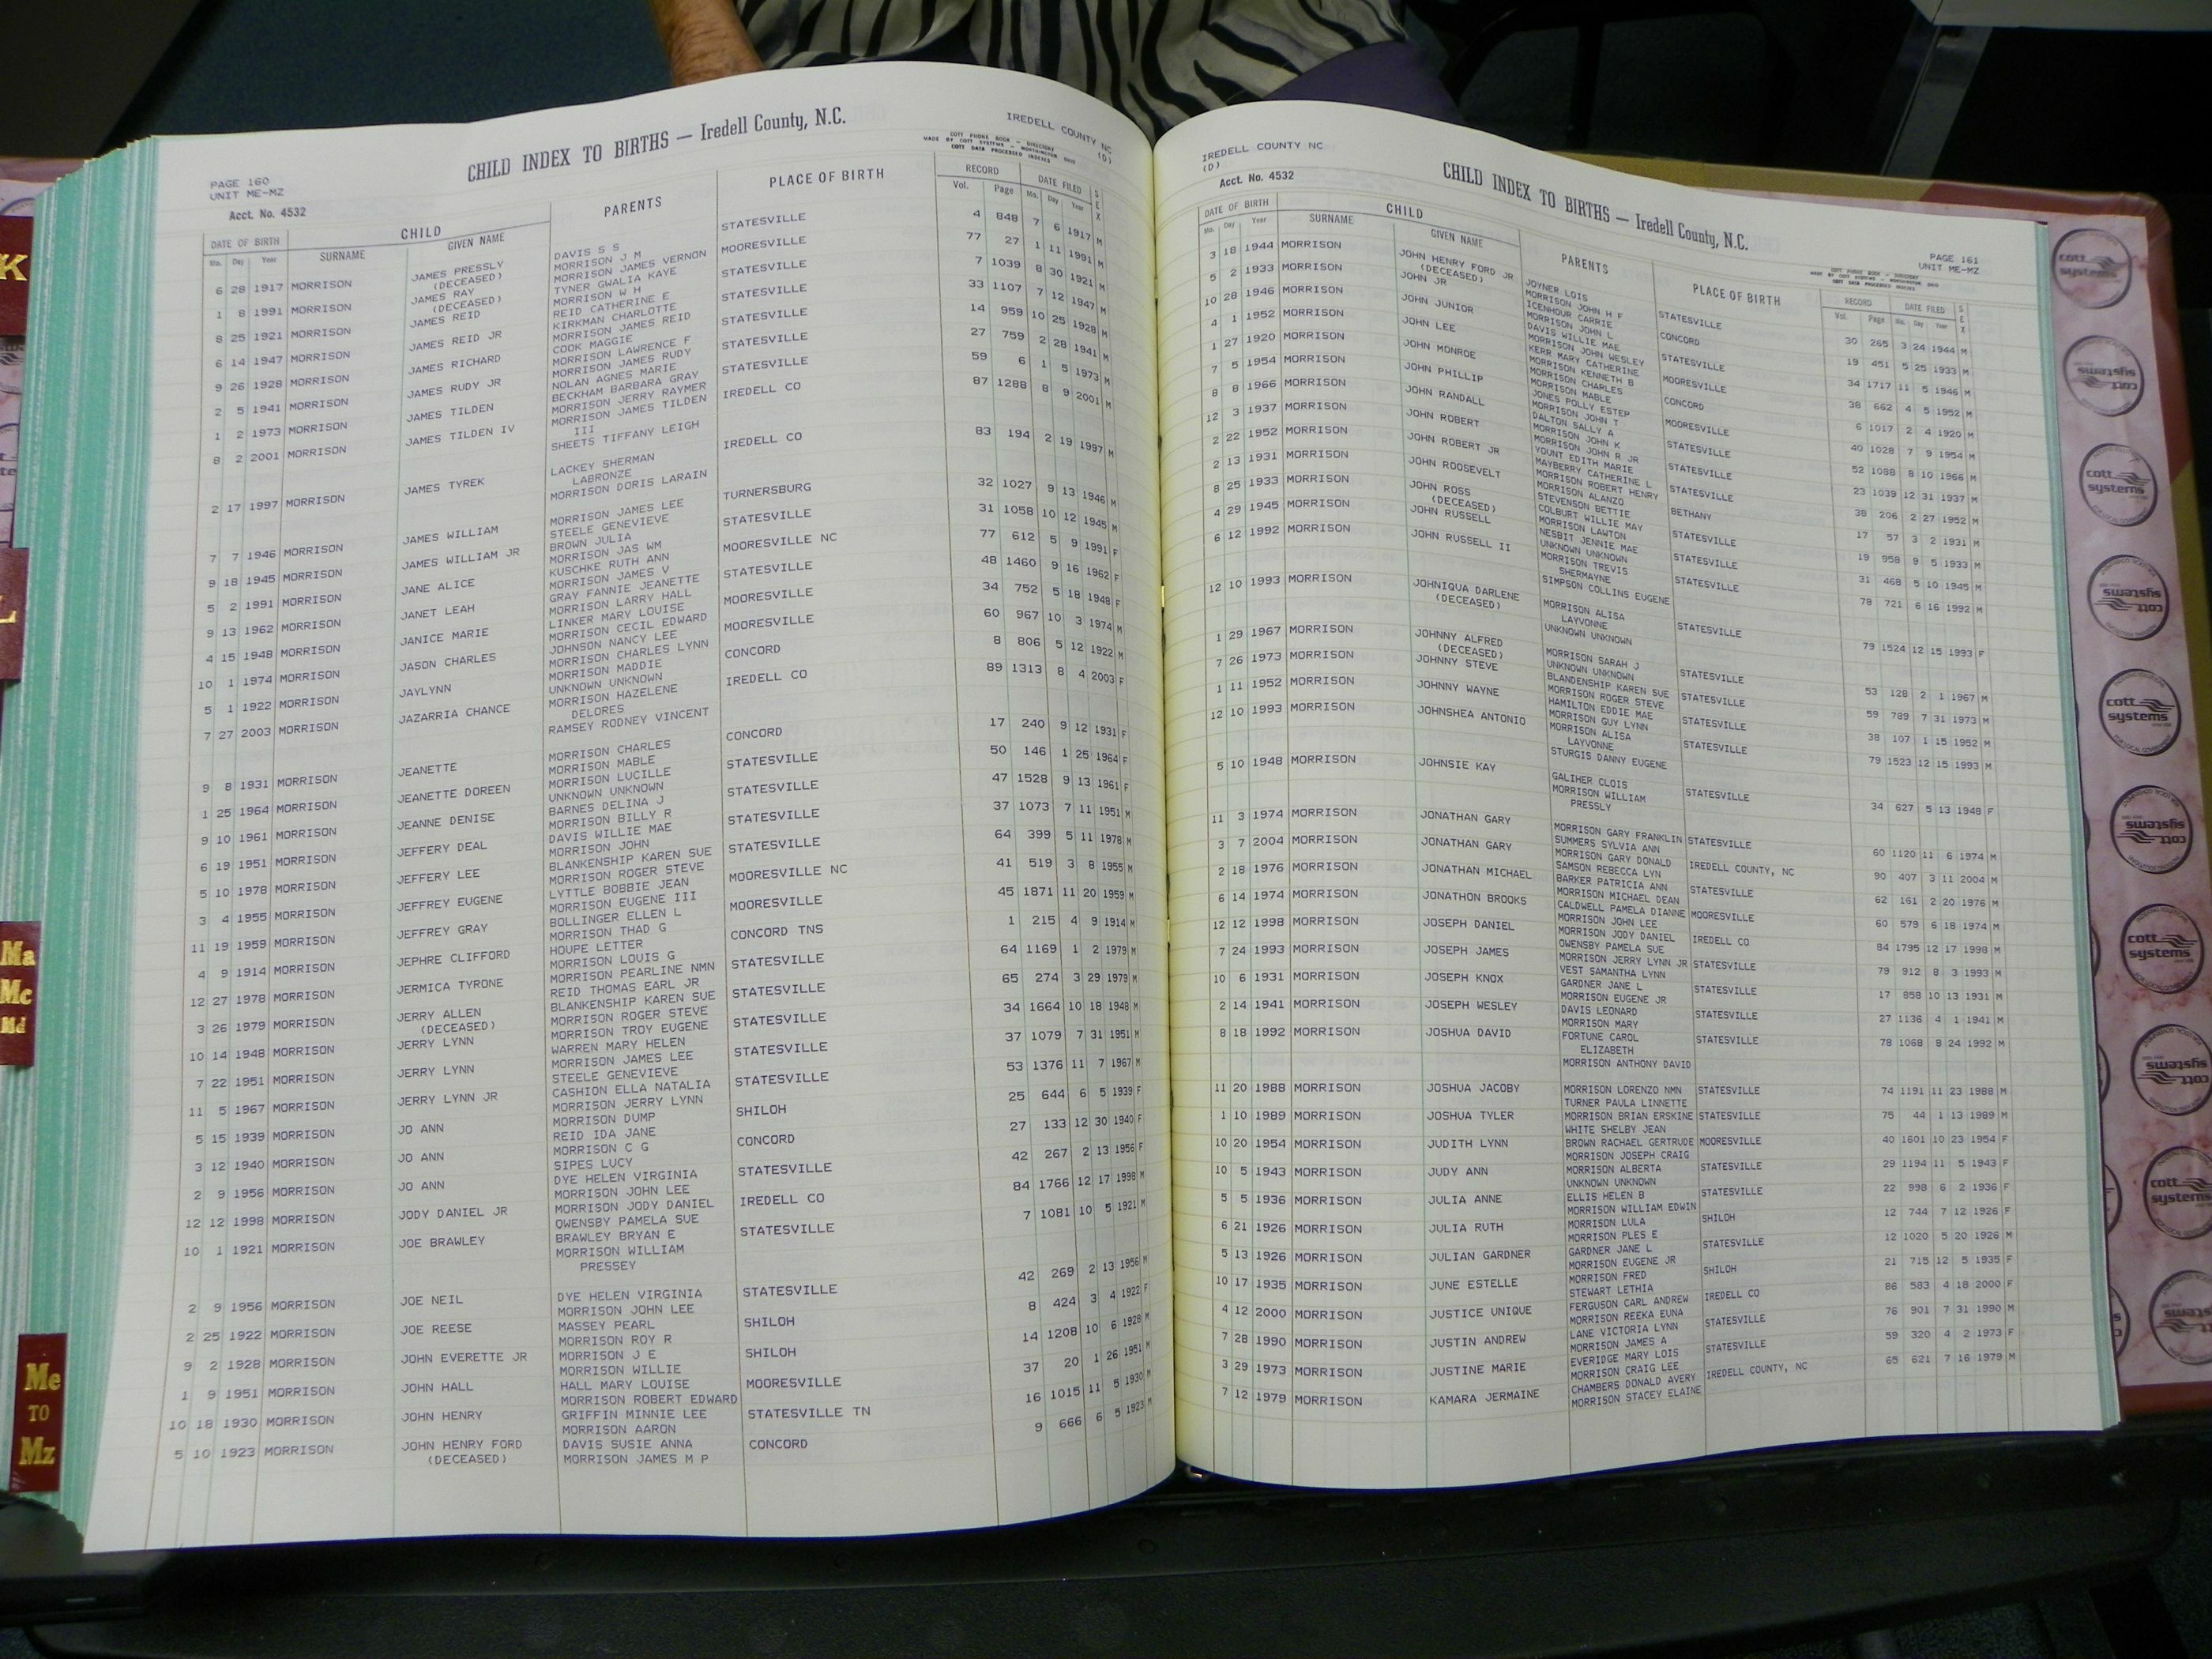 CHILD INDEX TO BIRTHS — Iredell County, N.C.
IREDELL COUNTY NC
(D)
COTT PHONE BOOK - DIRECTORY
MADE BY COTT SYSTEMS - WORTHINGTON OHIO
COTT DATA PROCESSED INDEXES
PAGE 160
UNIT ME-MZ
Acct. No. 4532
DATE OF BIRTH CHILD PARENTS PLACE OF BIRTH RECORD DATE FILED SEX
Mo. Day Year SURNAME GIVEN NAME Vol. Page Mo. Day Year
6 28 1917 MORRISON JAMES PRESSLY DAVIS S S STATESVILLE 4 848 7 6 1917 M
(DECEASED) MORRISON J M
1 8 1991 MORRISON JAMES RAY MORRISON JAMES VERNON MOORESVILLE 77 27 1 11 1991 M
(DECEASED) TYNER GWALIA KAYE
8 25 1921 MORRISON JAMES REID MORRISON W H STATESVILLE 7 1039 8 30 1921 M
REID CATHERINE E
6 14 1947 MORRISON JAMES REID JR KIRKMAN CHARLOTTE STATESVILLE 33 1107 7 12 1947 M
MORRISON JAMES REID
9 26 1928 MORRISON JAMES RICHARD COOK MAGGIE STATESVILLE 14 959 10 25 1928 M
MORRISON LAWRENCE F
2 5 1941 MORRISON JAMES RUDY JR MORRISON JAMES RUDY STATESVILLE 27 759 2 28 1941 M
NOLAN AGNES MARIE
1 2 1973 MORRISON JAMES TILDEN BECKHAM BARBARA GRAY STATESVILLE 59 6 1 5 1973 M
MORRISON JERRY RAYMER
8 2 2001 MORRISON JAMES TILDEN IV MORRISON JAMES TILDEN IREDELL CO 87 1288 8 9 2001 M
III
SHEETS TIFFANY LEIGH
2 17 1997 MORRISON JAMES TYREK LACKEY SHERMAN IREDELL CO 83 194 2 19 1997 M
LABRONZE
MORRISON DORIS LARAIN
7 7 1946 MORRISON JAMES WILLIAM MORRISON JAMES LEE TURNERSBURG 32 1027 9 13 1946 M
STEELE GENEVIEVE
9 18 1945 MORRISON JAMES WILLIAM JR BROWN JULIA STATESVILLE 31 1058 10 12 1945 M
MORRISON JAS WM
5 2 1991 MORRISON JANE ALICE KUSCHKE RUTH ANN MOORESVILLE NC 77 612 5 9 1991 F
MORRISON JAMES V
9 13 1962 MORRISON JANET LEAH GRAY FANNIE JEANETTE STATESVILLE 48 1460 9 16 1962 F
MORRISON LARRY HALL
4 15 1948 MORRISON JANICE MARIE LINKER MARY LOUISE MOORESVILLE 34 752 5 18 1948 F
MORRISON CECIL EDWARD
10 1 1974 MORRISON JASON CHARLES JOHNSON NANCY LEE MOORESVILLE 60 967 10 3 1974 M
MORRISON CHARLES LYNN
5 1 1922 MORRISON JAYLYNN MORRISON MADDIE CONCORD 8 806 5 12 1922 M
UNKNOWN UNKNOWN
7 27 2003 MORRISON JAZARRIA CHANCE MORRISON HAZELENE IREDELL CO 89 1313 8 4 2003 F
DELORES
RAMSEY RODNEY VINCENT
9 8 1931 MORRISON JEANETTE MORRISON CHARLES CONCORD 17 240 9 12 1931 F
MORRISON MABLE
1 25 1964 MORRISON JEANETTE DOREEN MORRISON LUCILLE STATESVILLE 50 146 1 25 1964 F
UNKNOWN UNKNOWN
9 10 1961 MORRISON JEANNE DENISE BARNES DELINA J STATESVILLE 47 1528 9 13 1961 F
MORRISON BILLY R
6 19 1951 MORRISON JEFFERY DEAL DAVIS WILLIE MAE STATESVILLE 37 1073 7 11 1951 M
MORRISON JOHN
5 10 1978 MORRISON JEFFERY LEE BLANKENSHIP KAREN SUE STATESVILLE 64 399 5 11 1978 M
MORRISON ROGER STEVE
3 4 1955 MORRISON JEFFREY EUGENE LYTTLE BOBBIE JEAN MOORESVILLE NC 41 519 3 8 1955 M
MORRISON EUGENE III
11 19 1959 MORRISON JEFFREY GRAY BOLLINGER ELLEN L MOORESVILLE 45 1871 11 20 1959 M
MORRISON THAD G
4 9 1914 MORRISON JEPHRE CLIFFORD HOUPE LETTER CONCORD TNS 1 215 4 9 1914 M
MORRISON LOUIS G
12 27 1978 MORRISON JERMICA TYRONE MORRISON PEARLINE NMN STATESVILLE 64 1169 1 2 1979 M
REID THOMAS EARL JR
3 26 1979 MORRISON JERRY ALLEN BLANKENSHIP KAREN SUE STATESVILLE 65 274 3 29 1979 M
(DECEASED) MORRISON ROGER STEVE
10 14 1948 MORRISON JERRY LYNN MORRISON TROY EUGENE STATESVILLE 34 1664 10 18 1948 M
WARREN MARY HELEN
7 22 1951 MORRISON JERRY LYNN MORRISON JAMES LEE STATESVILLE 37 1079 7 31 1951 M
STEELE GENEVIEVE
11 5 1967 MORRISON JERRY LYNN JR CASHION ELLA NATALIA STATESVILLE 53 1376 11 7 1967 M
MORRISON JERRY LYNN
5 15 1939 MORRISON JO ANN MORRISON DUMP SHILOH 25 644 6 5 1939 F
REID IDA JANE
3 12 1940 MORRISON JO ANN MORRISON C G CONCORD 27 133 12 30 1940 F
SIPES LUCY
2 9 1956 MORRISON JO ANN DYE HELEN VIRGINIA STATESVILLE 42 267 2 13 1956 F
MORRISON JOHN LEE
12 12 1998 MORRISON JODY DANIEL JR MORRISON JODY DANIEL IREDELL CO 84 1766 12 17 1998 M
OWENSBY PAMELA SUE
10 1 1921 MORRISON JOE BRAWLEY BRAWLEY BRYAN E STATESVILLE 7 1081 10 5 1921 M
MORRISON WILLIAM
PRESSEY
2 9 1956 MORRISON JOE NEIL DYE HELEN VIRGINIA STATESVILLE 42 269 2 13 1956 M
MORRISON JOHN LEE
2 25 1922 MORRISON JOE REESE MASSEY PEARL SHILOH 8 424 3 4 1922 F
MORRISON ROY R
9 2 1928 MORRISON JOHN EVERETTE JR MORRISON J E SHILOH 14 1208 10 6 1928 M
MORRISON WILLIE
1 9 1951 MORRISON JOHN HALL HALL MARY LOUISE MOORESVILLE 37 20 1 26 1951 M
MORRISON ROBERT EDWARD
10 18 1930 MORRISON JOHN HENRY GRIFFIN MINNIE LEE STATESVILLE TN 16 1015 11 5 1930 M
MORRISON AARON
5 10 1923 MORRISON JOHN HENRY FORD DAVIS SUSIE ANNA CONCORD 9 666 6 5 1923 M
(DECEASED) MORRISON JAMES M P
IREDELL COUNTY NC
(D)
Acct. No. 4532
CHILD INDEX TO BIRTHS — Iredell County, N.C.
PAGE 161
UNIT ME-MZ
COTT PHONE BOOK - DIRECTORY
MADE BY COTT SYSTEMS - WORTHINGTON OHIO
COTT DATA PROCESSED INDEXES
DATE OF BIRTH CHILD PARENTS PLACE OF BIRTH RECORD DATE FILED SEX
Mo. Day Year SURNAME GIVEN NAME Vol. Page Mo. Day Year
3 18 1944 MORRISON JOHN HENRY FORD JR JOYNER LOIS STATESVILLE 30 265 3 24 1944 M
(DECEASED) MORRISON JOHN H F
5 2 1933 MORRISON JOHN JR ICENHOUR CARRIE CONCORD 19 451 5 25 1933 M
MORRISON JOHN L
10 28 1946 MORRISON JOHN JUNIOR DAVIS WILLIE MAE STATESVILLE 34 1717 11 5 1946 M
MORRISON JOHN WESLEY
4 1 1952 MORRISON JOHN LEE KERR MARY CATHERINE MOORESVILLE 38 662 4 5 1952 M
MORRISON KENNETH B
1 27 1920 MORRISON JOHN MONROE MORRISON CHARLES CONCORD 6 1017 2 4 1920 M
MORRISON MABLE
7 5 1954 MORRISON JOHN PHILLIP JONES POLLY ESTEP MOORESVILLE 40 1028 7 9 1954 M
MORRISON JOHN T
8 8 1966 MORRISON JOHN RANDALL DALTON SALLY A STATESVILLE 52 1088 8 10 1966 M
MORRISON JOHN K
12 3 1937 MORRISON JOHN ROBERT MORRISON JOHN R JR STATESVILLE 23 1039 12 31 1937 M
YOUNT EDITH MARIE
2 22 1952 MORRISON JOHN ROBERT JR MAYBERRY CATHERINE L STATESVILLE 38 206 2 27 1952 M
MORRISON ROBERT HENRY
2 13 1931 MORRISON JOHN ROOSEVELT MORRISON ALANZO BETHANY 17 57 3 2 1931 M
STEVENSON BETTIE
8 25 1933 MORRISON JOHN ROSS COLBURT WILLIE MAY STATESVILLE 19 958 9 5 1933 M
(DECEASED) MORRISON LAWTON
4 29 1945 MORRISON JOHN RUSSELL NESBIT JENNIE MAE STATESVILLE 31 468 5 10 1945 M
UNKNOWN UNKNOWN
6 12 1992 MORRISON JOHN RUSSELL II MORRISON TREVIS STATESVILLE 78 721 6 16 1992 M
SHERMAYNE
SIMPSON COLLINS EUGENE
12 10 1993 MORRISON JOHNIQUA DARLENE MORRISON ALISA STATESVILLE 79 1524 12 15 1993 F
(DECEASED) LAYVONNE
UNKNOWN UNKNOWN
1 29 1967 MORRISON JOHNNY ALFRED MORRISON SARAH J STATESVILLE 53 128 2 1 1967 M
(DECEASED) UNKNOWN UNKNOWN
7 26 1973 MORRISON JOHNNY STEVE BLANDENSHIP KAREN SUE STATESVILLE 59 789 7 31 1973 M
MORRISON ROGER STEVE
1 11 1952 MORRISON JOHNNY WAYNE HAMILTON EDDIE MAE STATESVILLE 38 107 1 15 1952 M
MORRISON GUY LYNN
12 10 1993 MORRISON JOHNSHEA ANTONIO MORRISON ALISA STATESVILLE 79 1523 12 15 1993 M
LAYVONNE
STURGIS DANNY EUGENE
5 10 1948 MORRISON JOHNSIE KAY GALIHER CLOIS STATESVILLE 34 627 5 13 1948 F
MORRISON WILLIAM
PRESSLY
11 3 1974 MORRISON JONATHAN GARY MORRISON GARY FRANKLIN STATESVILLE 60 1120 11 6 1974 M
SUMMERS SYLVIA ANN
3 7 2004 MORRISON JONATHAN GARY MORRISON GARY DONALD IREDELL COUNTY, NC 90 407 3 11 2004 M
SAMSON REBECCA LYN
2 18 1976 MORRISON JONATHAN MICHAEL BARKER PATRICIA ANN STATESVILLE 62 161 2 20 1976 M
MORRISON MICHAEL DEAN
6 14 1974 MORRISON JONATHON BROOKS CALDWELL PAMELA DIANNE MOORESVILLE 60 579 6 18 1974 M
MORRISON JOHN LEE
12 12 1998 MORRISON JOSEPH DANIEL MORRISON JODY DANIEL IREDELL CO 84 1795 12 17 1998 M
OWENSBY PAMELA SUE
7 24 1993 MORRISON JOSEPH JAMES MORRISON JERRY LYNN JR STATESVILLE 79 912 8 3 1993 M
VEST SAMANTHA LYNN
10 6 1931 MORRISON JOSEPH KNOX GARDNER JANE L STATESVILLE 17 858 10 13 1931 M
MORRISON EUGENE JR
2 14 1941 MORRISON JOSEPH WESLEY DAVIS LEONARD STATESVILLE 27 1136 4 1 1941 M
MORRISON MARY
8 18 1992 MORRISON JOSHUA DAVID FORTUNE CAROL STATESVILLE 78 1068 8 24 1992 M
ELIZABETH
MORRISON ANTHONY DAVID
11 20 1988 MORRISON JOSHUA JACOBY MORRISON LORENZO NMN STATESVILLE 74 1191 11 23 1988 M
TURNER PAULA LINNETTE
1 10 1989 MORRISON JOSHUA TYLER MORRISON BRIAN ERSKINE STATESVILLE 75 44 1 13 1989 M
WHITE SHELBY JEAN
10 20 1954 MORRISON JUDITH LYNN BROWN RACHAEL GERTRUDE MOORESVILLE 40 1601 10 23 1954 F
MORRISON JOSEPH CRAIG
10 5 1943 MORRISON JUDY ANN MORRISON ALBERTA STATESVILLE 29 1194 11 5 1943 F
UNKNOWN UNKNOWN
5 5 1936 MORRISON JULIA ANNE ELLIS HELEN B STATESVILLE 22 998 6 2 1936 F
MORRISON WILLIAM EDWIN
6 21 1926 MORRISON JULIA RUTH MORRISON LULA SHILOH 12 744 7 12 1926 F
MORRISON PLES E
5 13 1926 MORRISON JULIAN GARDNER GARDNER JANE L STATESVILLE 12 1020 5 20 1926 M
MORRISON EUGENE JR
10 17 1935 MORRISON JUNE ESTELLE MORRISON FRED SHILOH 21 715 12 5 1935 F
STEWART LETHIA
4 12 2000 MORRISON JUSTICE UNIQUE FERGUSON CARL ANDREW IREDELL CO 86 583 4 18 2000 F
MORRISON REEKA EUNA
7 28 1990 MORRISON JUSTIN ANDREW LANE VICTORIA LYNN STATESVILLE 76 901 7 31 1990 M
MORRISON JAMES A
3 29 1973 MORRISON JUSTINE MARIE EVERIDGE MARY LOIS STATESVILLE 59 320 4 2 1973 F
MORRISON CRAIG LEE
7 12 1979 MORRISON KAMARA JERMAINE CHAMBERS DONALD AVERY IREDELL COUNTY, NC 65 621 7 16 1979 M
MORRISON STACEY ELAINE
K
L
Ma
Mc
Md
Me
TO
Mz
cott
systems
cott
systems
cott
systems
cott
systems
cott
systems
cott
systems
cott
systems
cott
systems
cott
systems